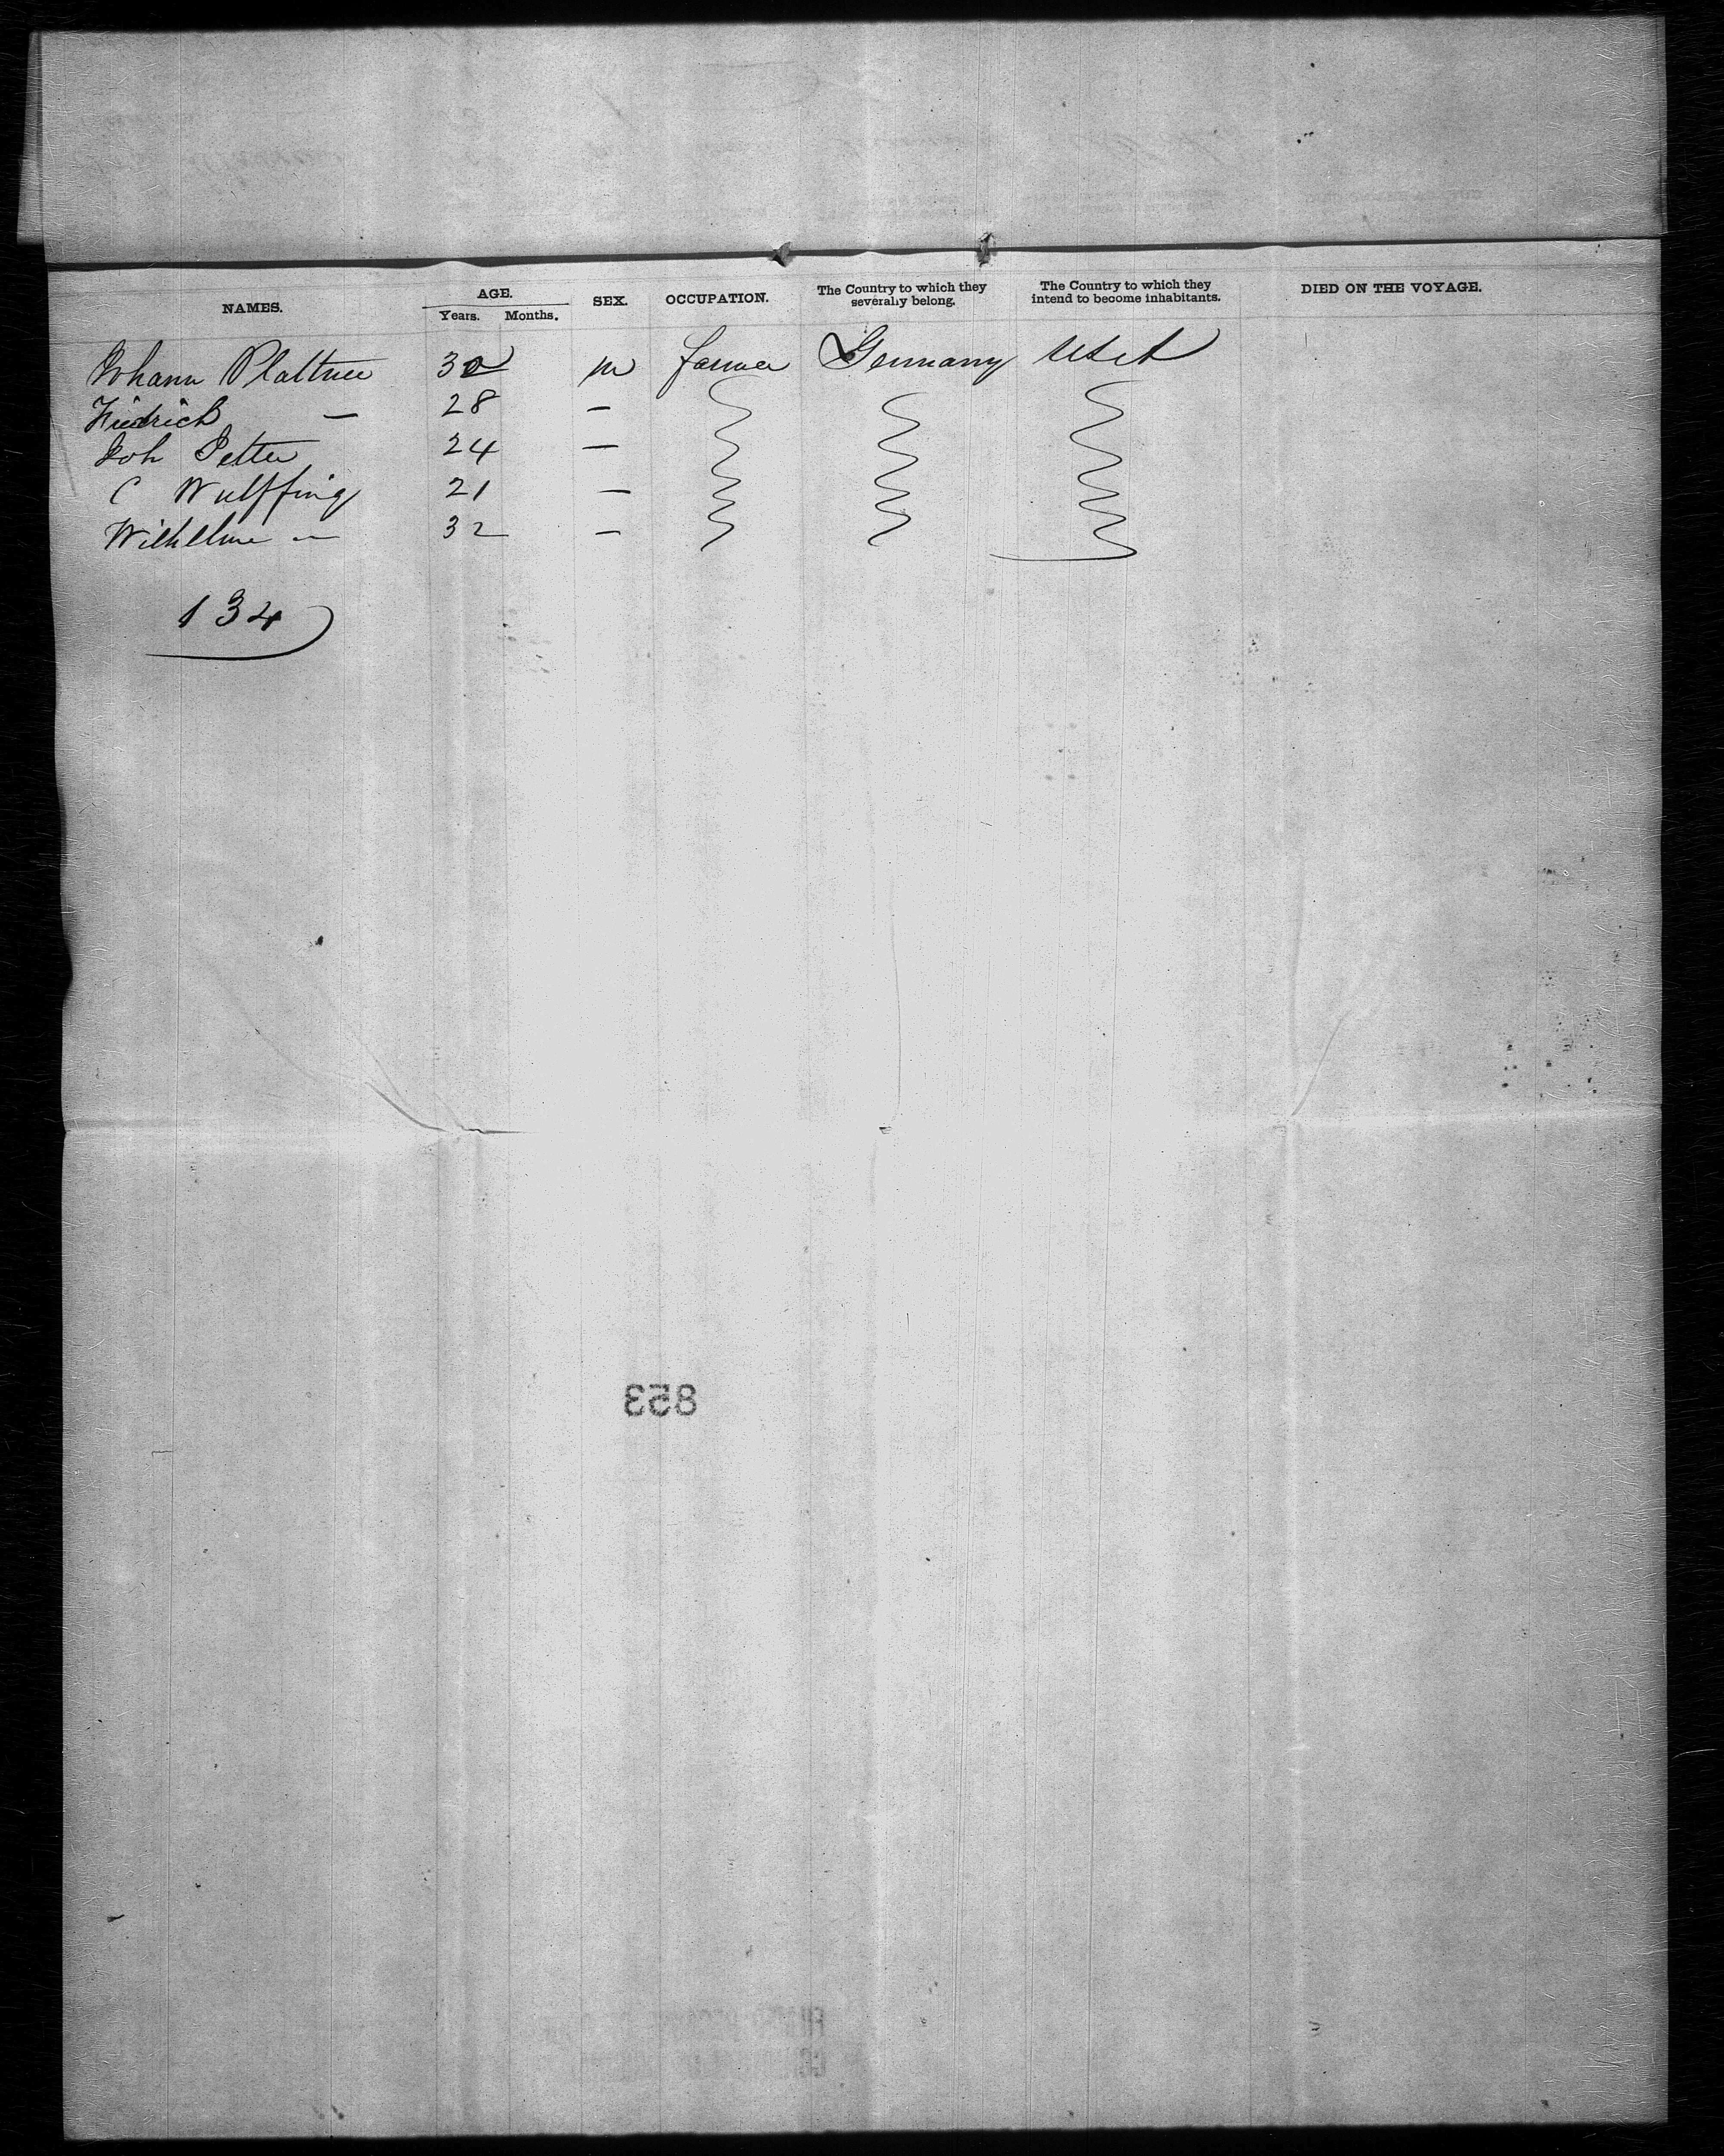 NAMES. AGE. SEX. OCCUPATION. The Country to which they severally belong. The Country to which they intend to become inhabitants. DIED ON THE VOYAGE.
Years. Months.
Johann Plattner 32 m farmer Germany USA
Friedrich — 28 —
Joh Petter 24 —
C Wulffing 21 —
Wilhelme — 32 —
134
853